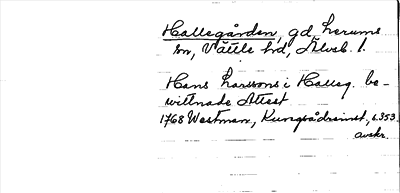 Hallegården, gd, Lerums
sn, Vättle hd, Älvsb. l.
Hans Larssons i Halleg. be-
wittnade Attest
1768 Westman, Kungsådreinst, s. 353.
avskr.